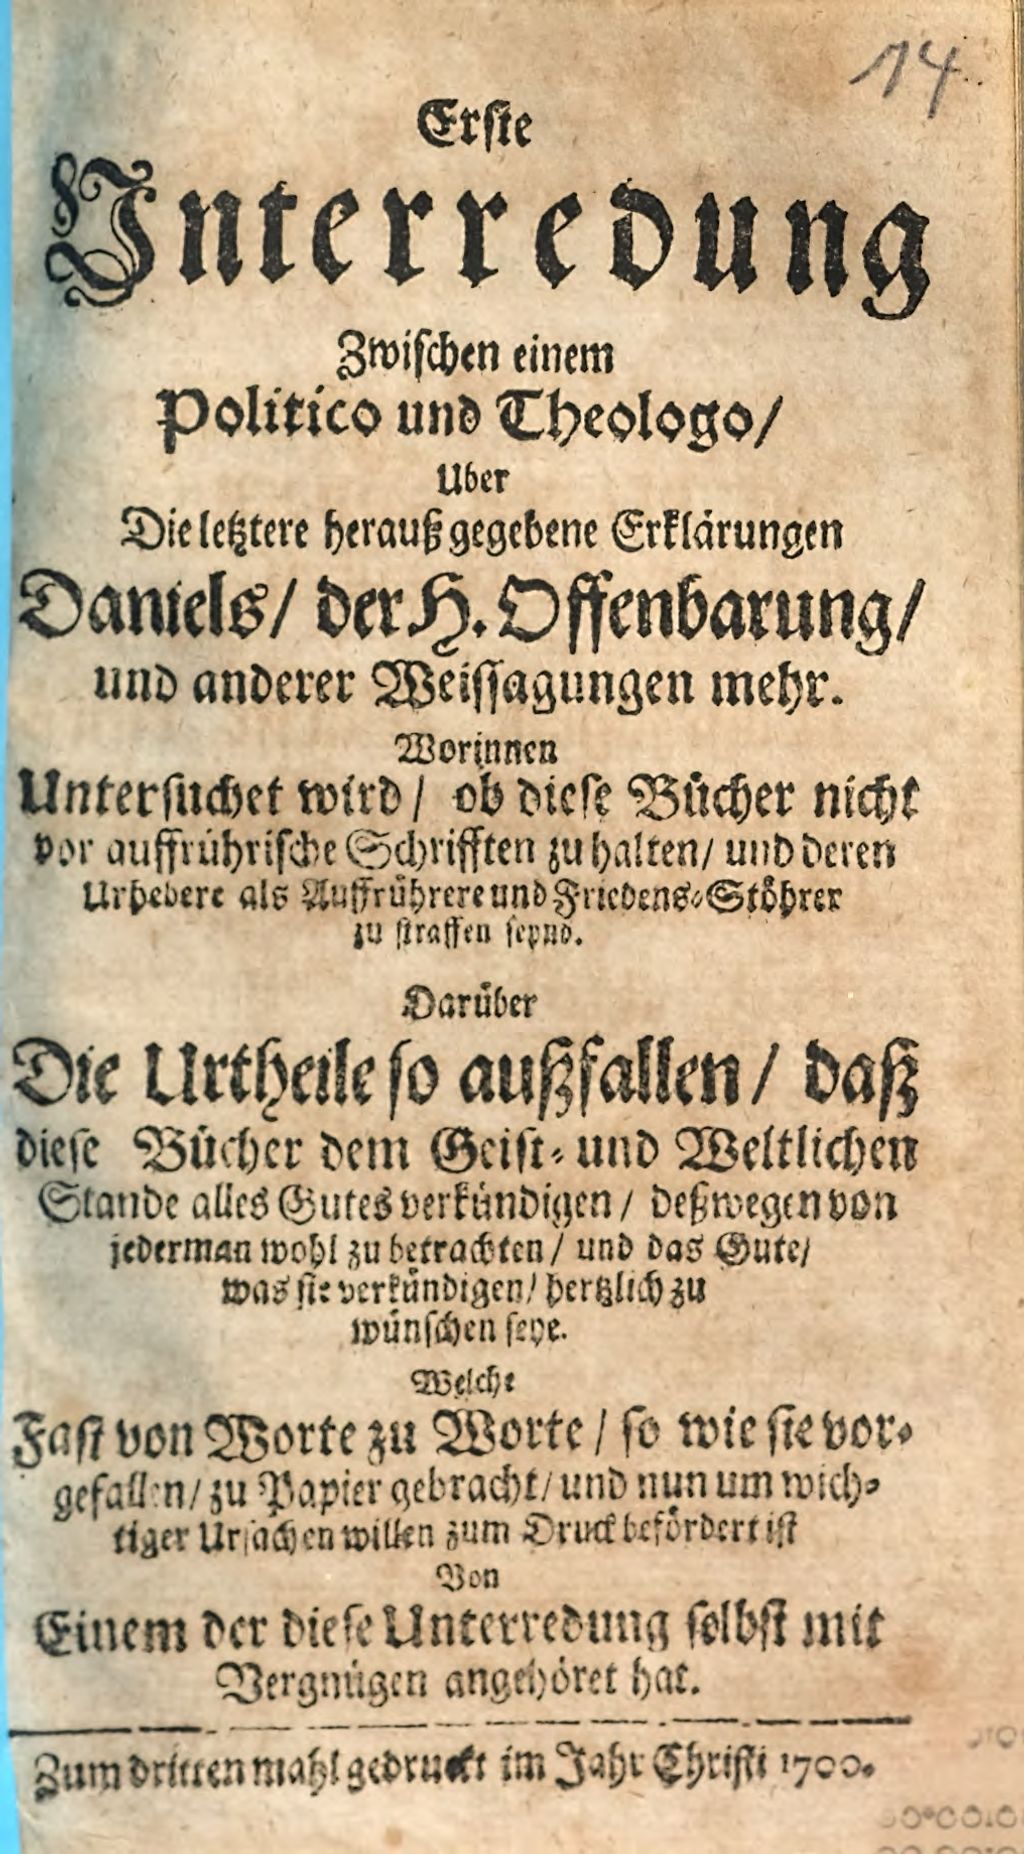 14
Erste
Unterredung
Zwischen einem
Politico und Theologo/
Uber
Die letztere herauß gegebene Erklärungen
Daniels/ der H. Offenbarung/
und anderer Weissagungen mehr.
Worinnen
Untersuchet wird/ ob diese Bücher nicht
vor auffrührische Schrifften zu halten/ und deren
Urhebere als Auffrührere und Friedens-Stöhrer
zu straffen seynd.
Darüber
Die Urtheile so außfallen/ daß
diese Bücher dem Geist- und Weltlichen
Stande alles Gutes verkündigen/ deßwegen von
jederman wohl zu betrachten/ und das Gute/
was sie verkündigen/ hertzlich zu
wünschen seye.
Welche
Fast von Worte zu Worte/ so wie sie vor-
gefallen/ zu Papier gebracht/ und nun um wich-
tiger Ursachen willen zum Druck befördert ist
Von
Einem der diese Unterredung selbst mit
Vergnügen angehöret hat.
Zum dritten mahl gedruckt im Jahr Christi 1700.